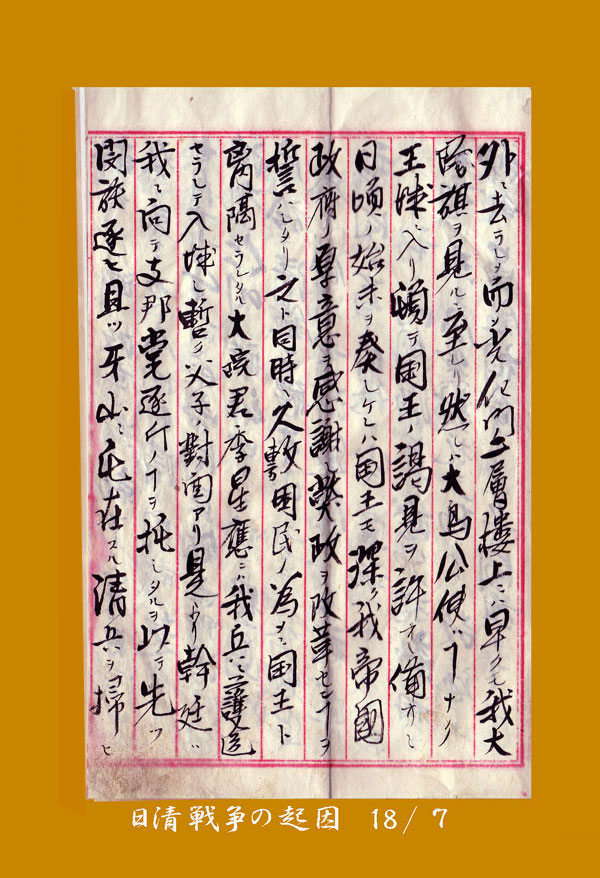 外ニ去ラシメ而シテ光化門二層楼上ニハ早クモ我大
隊旗ヲ見ルニ至レリ然シテ大鳥公使ハ ナク
王城ニ入リ 国王ノ謁見ヲ許サレ備サニ
日頃ノ始末ヲ奏シケレハ国王モ深ク我帝國
政府ノ厚意ヲ感謝シ弊政ヲ改革センヿヲ
誓ハレタリ之ト同時ニ久敷国民ノ為メニ国王ト
離隔セラレタル大院君李星應ニハ我兵ニ護送
セラレテ入城シ暫ク父子ノ對面アリ是ヨリ韓廷ハ
我ニ向テ支那党逐斥ノヿヲ托シタルヲ以テ先ツ
閔族逐ヒ且ツ牙山ニ屯在スル清兵ヲ掃ヒ
日清戦争の起因 18/ 7